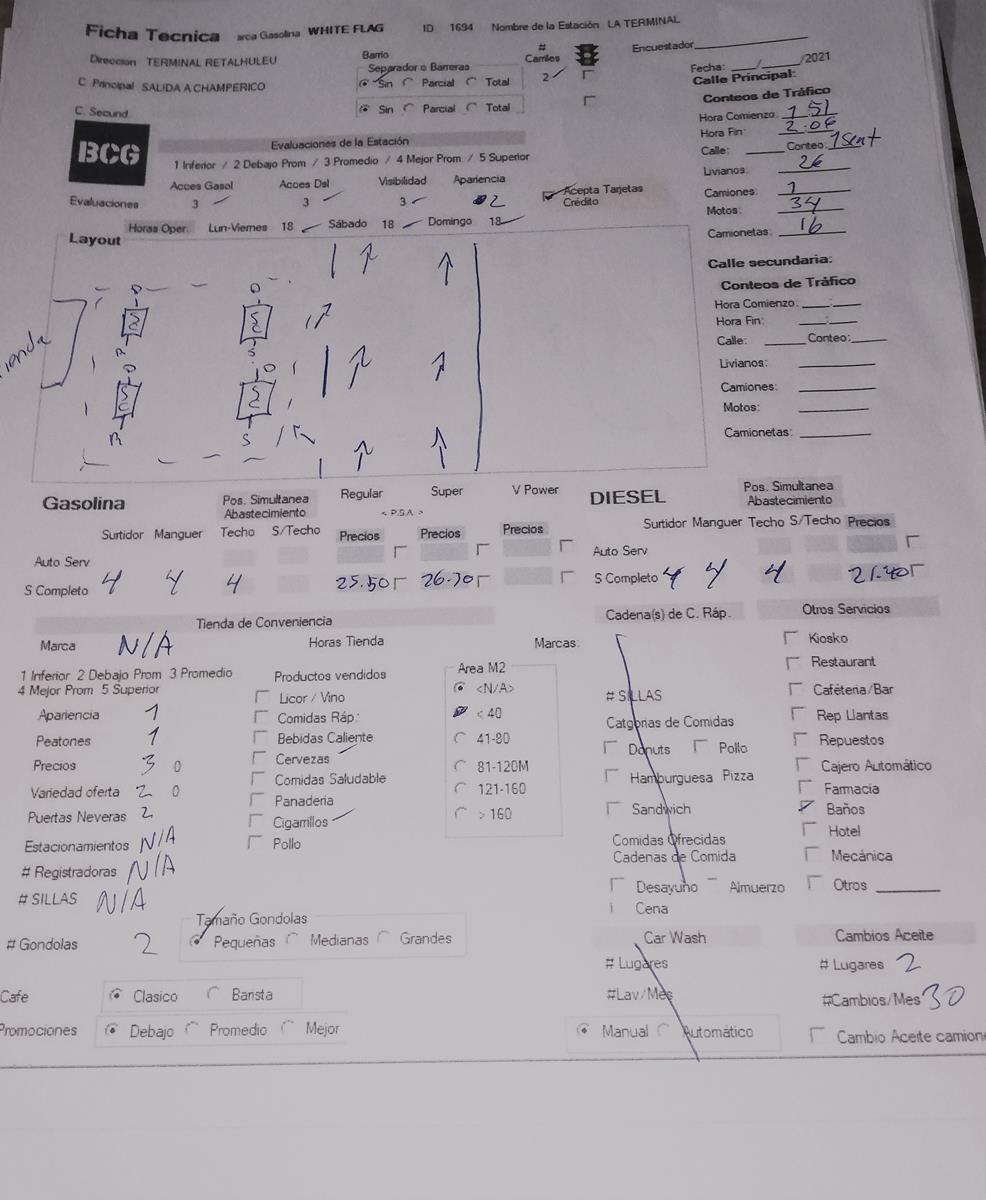 Ficha Tecnica arca Gasolina WHITE FLAG ID 1694 Nombre de la Estación LA TERMINAL
Direccion TERMINAL RETALHULEU
Barrio
# Carriles
Encuestador
C Principal SALIDA A CHAMPERICO
Separador o Barreras
Sin Parcial Total 2
Fecha: __/__/2021
C. Secund
Sin Parcial Total
Calle Principal:
Conteos de Tráfico
Hora Comienzo: 1 51
Hora Fin: 2:06
Calle: Conteo: 1 Sent
Livianos: 26
Camiones: 1
Motos: 34
Camionetas: 16
BCG
Evaluaciones de la Estación
1 Inferior / 2 Debajo Prom / 3 Promedio / 4 Mejor Prom / 5 Superior
Acces Gasol Acces Dsl Visibilidad Apariencia
Evaluaciones 3 3 3 2
Acepta Tarjetas Crédito
Horas Oper. Lun-Viernes 18 Sábado 18 Domingo 18
Layout
Tienda
D D
R S
D D
R S
Calle secundaria:
Conteos de Tráfico
Hora Comienzo: __:__
Hora Fin: __:__
Calle: Conteo:
Livianos:
Camiones:
Motos:
Camionetas:
Gasolina
Pos. Simultanea Abastecimiento
Regular Super V Power
< P.S.A. >
Surtidor Manguer Techo S/Techo Precios Precios Precios
Auto Serv
S Completo 4 4 4 25.50 26.70
DIESEL
Pos. Simultanea Abastecimiento
Surtidor Manguer Techo S/Techo Precios
Auto Serv
S Completo 4 4 4 21.40
Tienda de Conveniencia
Marca N/A Horas Tienda Marcas:
1 Inferior 2 Debajo Prom 3 Promedio
4 Mejor Prom 5 Superior
Apariencia 1
Peatones 1
Precios 3 0
Variedad oferta 2 0
Puertas Neveras 2
Estacionamientos N/A
# Registradoras N/A
# SILLAS N/A
# Gondolas 2
Productos vendidos
Licor / Vino
Comidas Ráp:
Bebidas Caliente
Cervezas
Comidas Saludable
Panaderia
Cigarrillos
Pollo
Area M2
<N/A>
< 40
41-80
81-120M
121-160
> 160
Tamaño Gondolas
Pequeñas Medianas Grandes
Cafe Clasico Barista
Promociones Debajo Promedio Mejor
Cadena(s) de C. Ráp.
# SILLAS
Catgorias de Comidas
Donuts Pollo
Hamburguesa Pizza
Sandwich
Comidas Ofrecidas
Cadenas de Comida
Desayuno Almuerzo
Cena
Car Wash
# Lugares
#Lav/Mes
Manual Automático
Otros Servicios
Kiosko
Restaurant
Cafeteria/Bar
Rep Llantas
Repuestos
Cajero Automático
Farmacia
Baños
Hotel
Mecánica
Otros
Cambios Aceite
# Lugares 2
#Cambios/Mes 30
Cambio Aceite camione